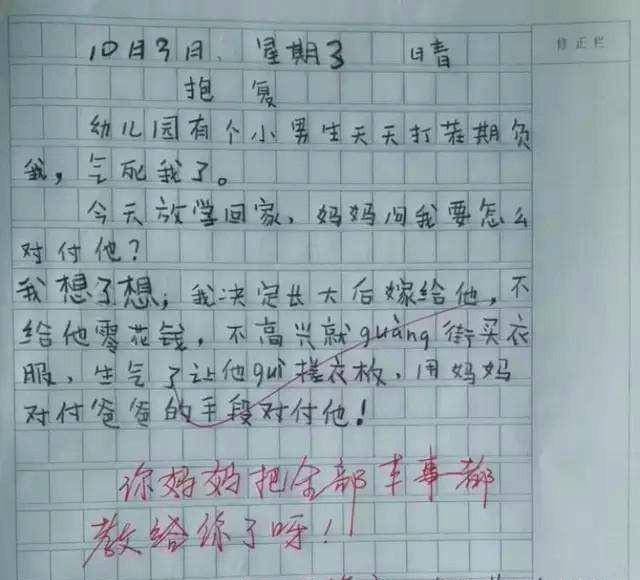 修正栏
10月3日 星期3 晴
抱复
幼儿园有个小男生天天打茬期负
我，气死我了。
今天放学回家，妈妈问我要怎么
对付他？
我想了想，我决定长大后嫁给他，不
给他零花钱，不高兴就guàng街买衣
服，生气了让他guì搓衣板，用妈妈
对付爸爸的手段对付他！
你妈妈把全部本事都
教给你了呀！